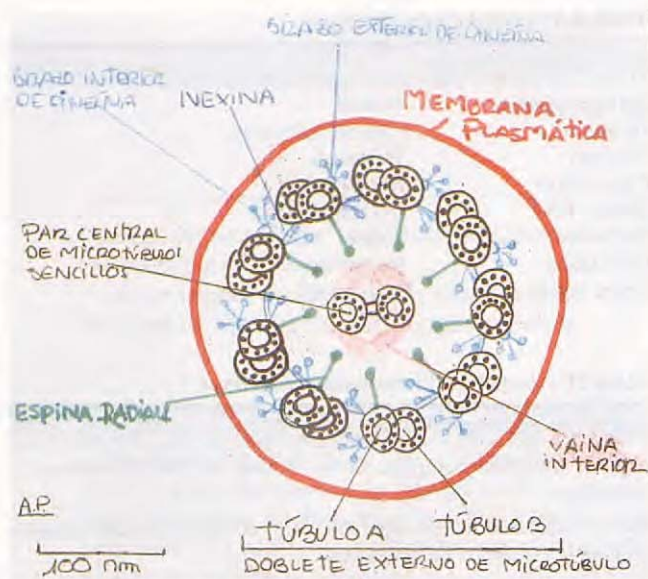 BRAZO EXTERNO DE DINEÍNA
BRAZO INTERIOR
DE DINEÍNA
NEXINA
MEMBRANA
PLASMÁTICA
PAR CENTRAL
DE MICROTÚBULOS
SENCILLOS
ESPINA RADIAL
VAINA
INTERIOR
A.P.
TÚBULO A
TÚBULO B
100 nm
DOBLETE EXTERNO DE MICROTÚBULO